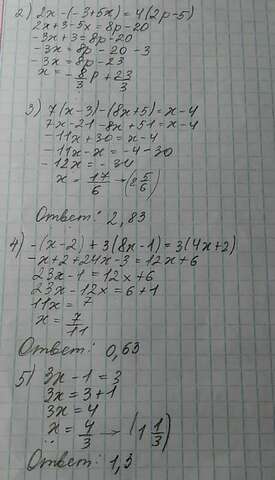 2) 2x - (-3+5x) = 4(2p-5)
2x+3-5x = 8p-20
-3x+3 = 8p-20
-3x = 8p-20-3
-3x = 8p-23
x = -8/3 p + 23/3
3) 7(x-3)-(8x+5) = x-4
7x-21-8x+51 = x-4
-11x+30 = x-4
-11x-x = -4-30
-12x = -34
x = 17/6 → (8 5/6)
Ответ: 2,83
4) -(x-2)+3(8x-1) = 3(4x+2)
-x+2+24x-3 = 12x+6
23x-1 = 12x+6
23x-12x = 6+1
11x = 7
x = 7/11
Ответ: 0,63
5) 3x-1 = 3
3x = 3+1
3x = 4
x = 4/3 → (1 1/3)
Ответ: 1,3